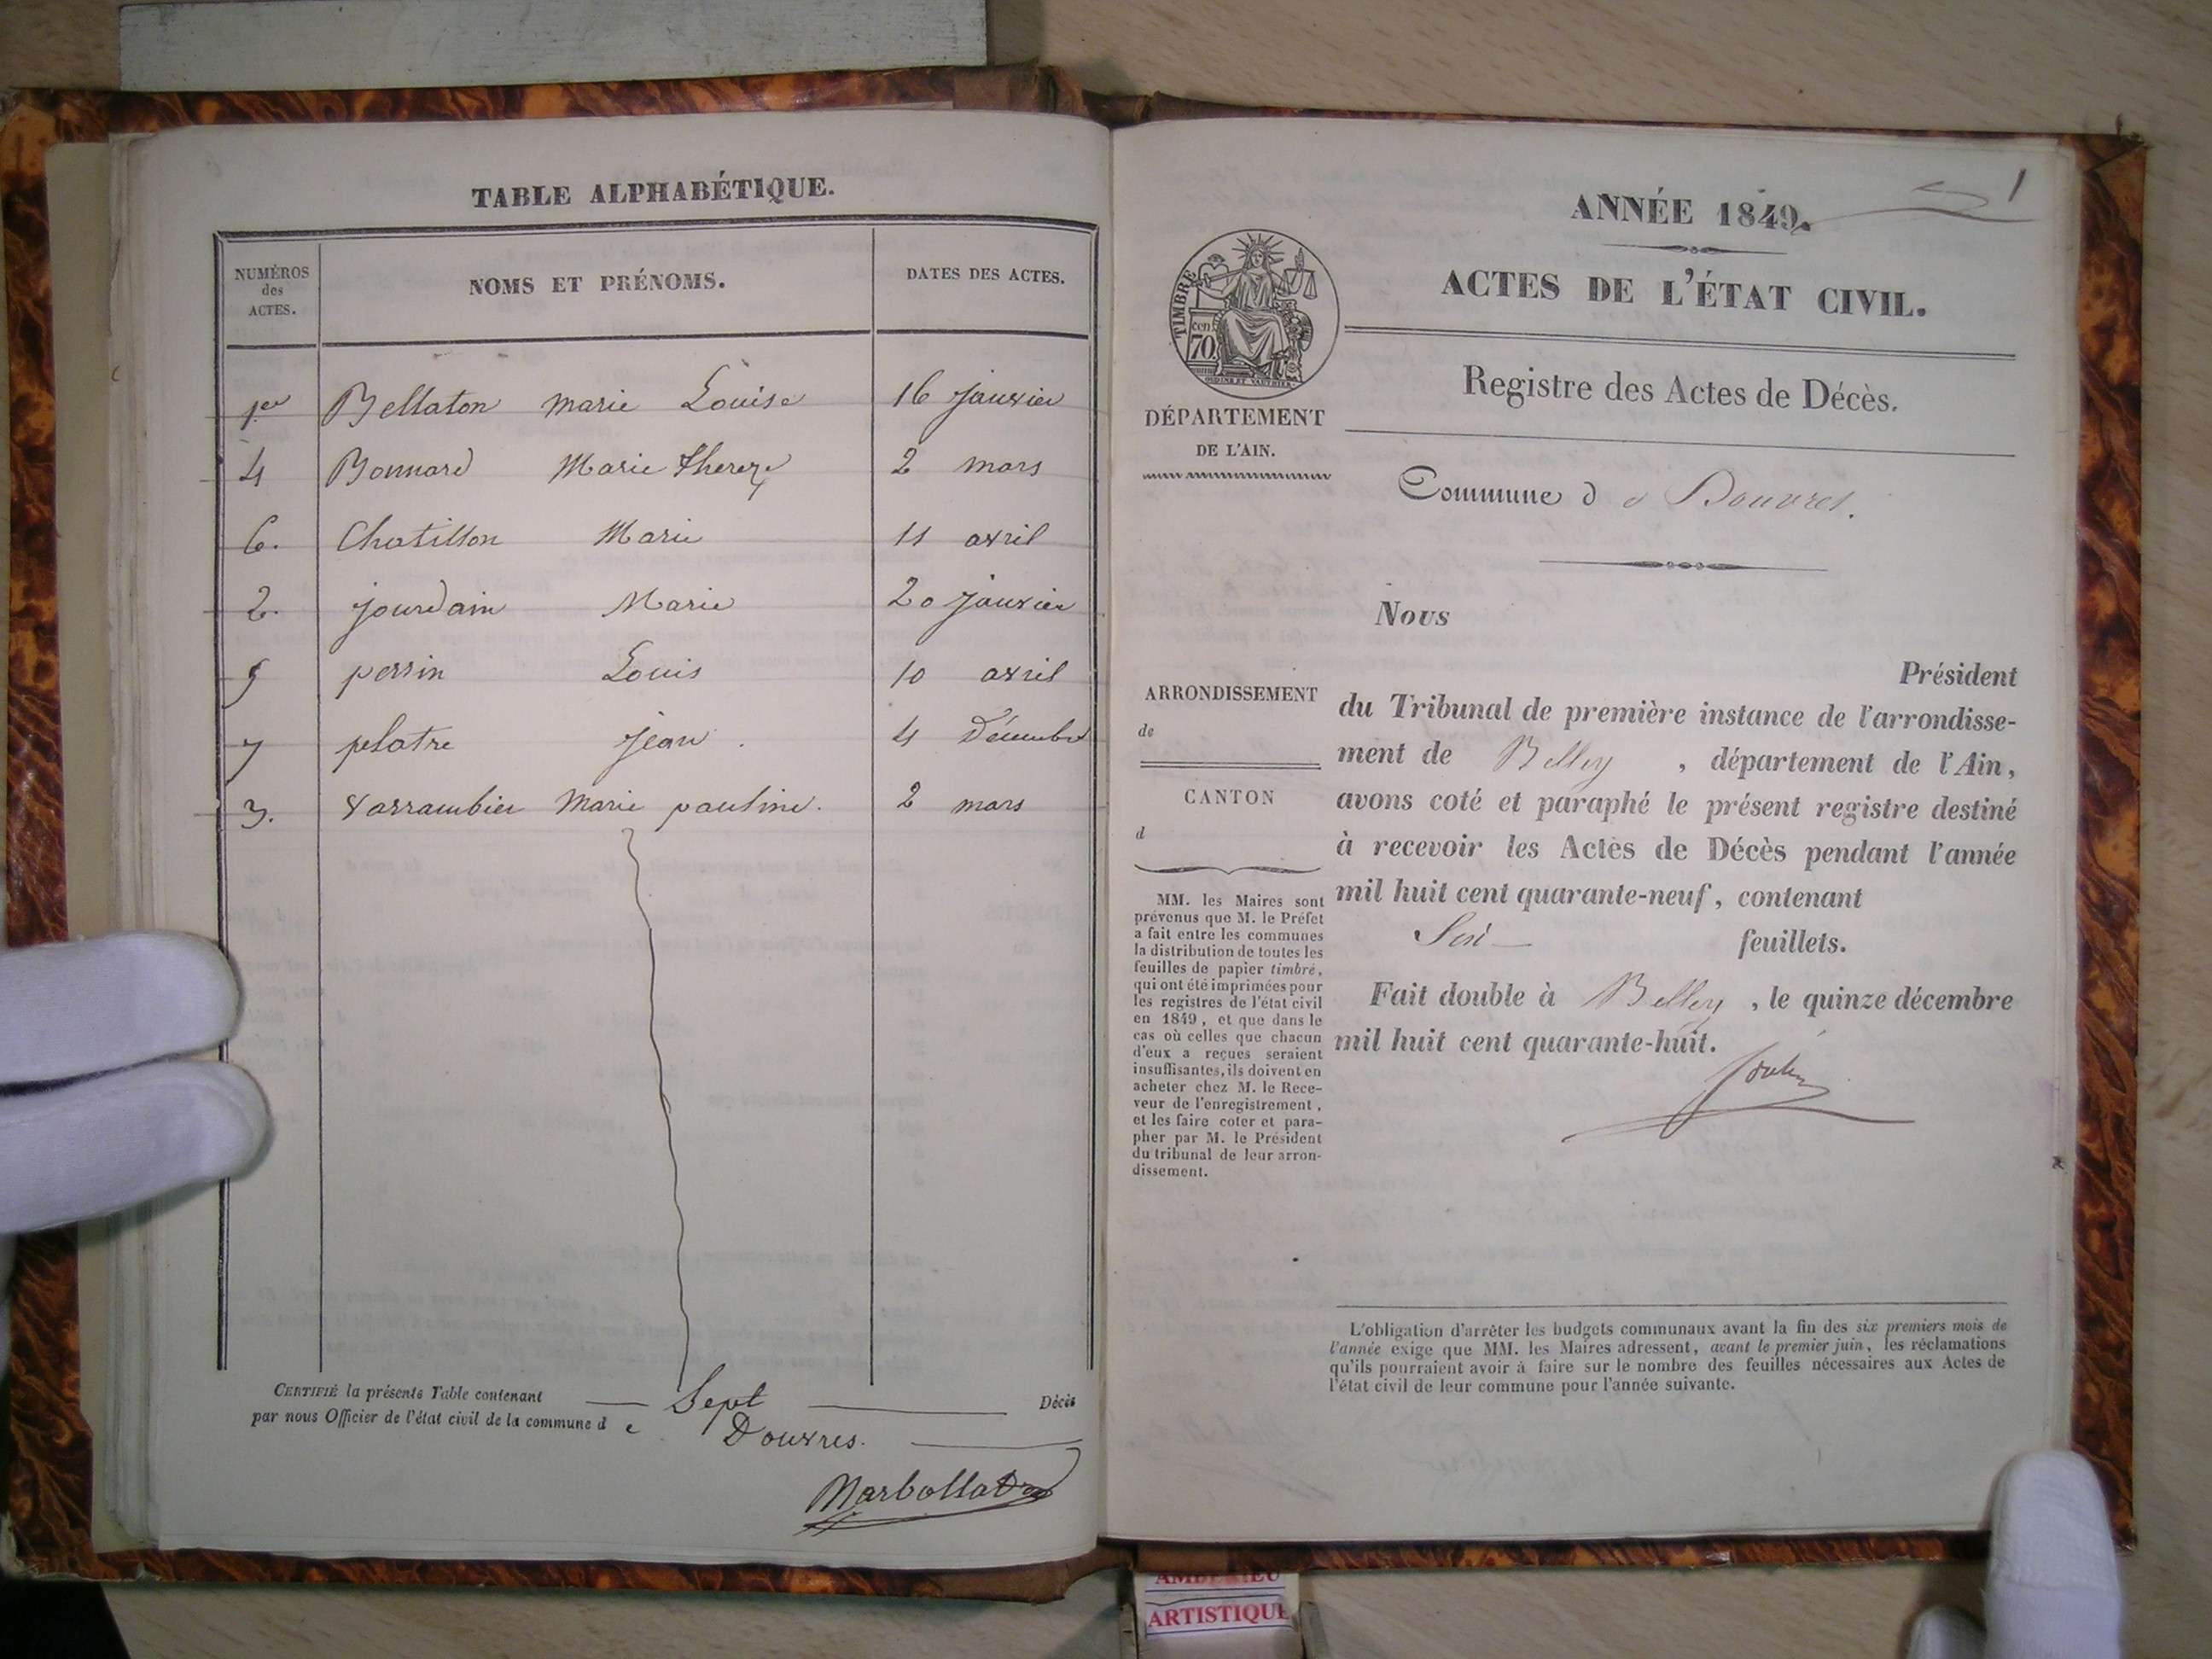 TABLE ALPHABÉTIQUE.
NUMÉROS
des
ACTES.
NOMS ET PRÉNOMS.
DATES DES ACTES.
1er Bellaton marie Louise 16 janvier
4 Bonnard Marie Thereze 2 mars
6. Chatillon Marie 11 avril
2. jourdain Marie 20 janvier
5 perrin Louis 10 avril
7 platre jean. 4 Décembre
3. varrambier Marie pauline. 2 mars
CERTIFIÉ la présente Table contenant Sept Décès
par nous Officier de l'état civil de la commune de Douvres.
Marbollat
1
ANNÉE 1849.
ACTES DE L'ÉTAT CIVIL.
Registre des Actes de Décès.
TIMBRE
70 cen
OUDINE ET VAUTHIER
DÉPARTEMENT
DE L'AIN.
Commune de Douvres.
Nous
Président
du Tribunal de première instance de l'arrondisse-
ment de Belley, département de l'Ain,
avons coté et paraphé le présent registre destiné
à recevoir les Actes de Décès pendant l'année
mil huit cent quarante-neuf, contenant
feuillets.
Fait double à Belley, le quinze décembre
mil huit cent quarante-huit.
ARRONDISSEMENT
de
CANTON
d
MM. les Maires sont
prévenus que M. le Préfet
a fait entre les communes
la distribution de toutes les
feuilles de papier timbré,
qui ont été imprimées pour
les registres de l'état civil
en 1849, et que dans le
cas où celles que chacun
d'eux a reçues seraient
insuffisantes, ils doivent en
acheter chez M. le Rece-
veur de l'enregistrement,
et les faire coter et para-
pher par M. le Président
du tribunal de leur arron-
dissement.
L'obligation d'arrêter les budgets communaux avant la fin des six premiers mois de
l'année exige que MM. les Maires adressent, avant le premier juin, les réclamations
qu'ils pourraient avoir à faire sur le nombre des feuilles nécessaires aux Actes de
l'état civil de leur commune pour l'année suivante.
ARTISTIQUE